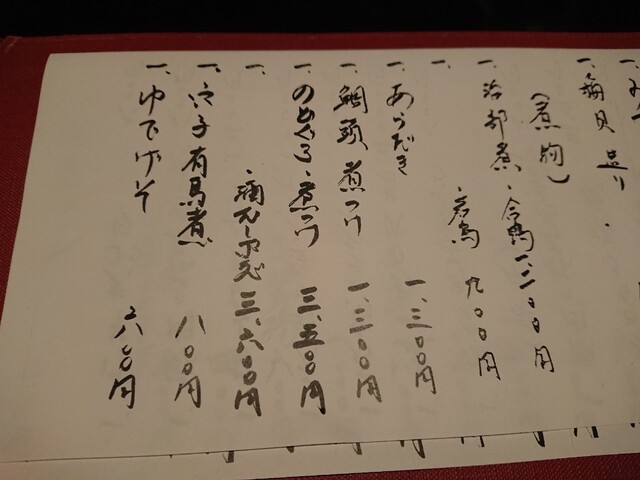 一、梅貝 造り
(煮物)
一、治部煮・合鴨 一、二〇〇円
・若鳥 九〇〇円
一、あらだき 一、三〇〇円
一、鯛頭 煮つけ 一、三〇〇円
一、のどぐろ・煮つけ 三、五〇〇円
一、・酒 三、六〇〇円
一、穴子有馬煮 八〇〇円
一、ゆでげそ 六〇〇円